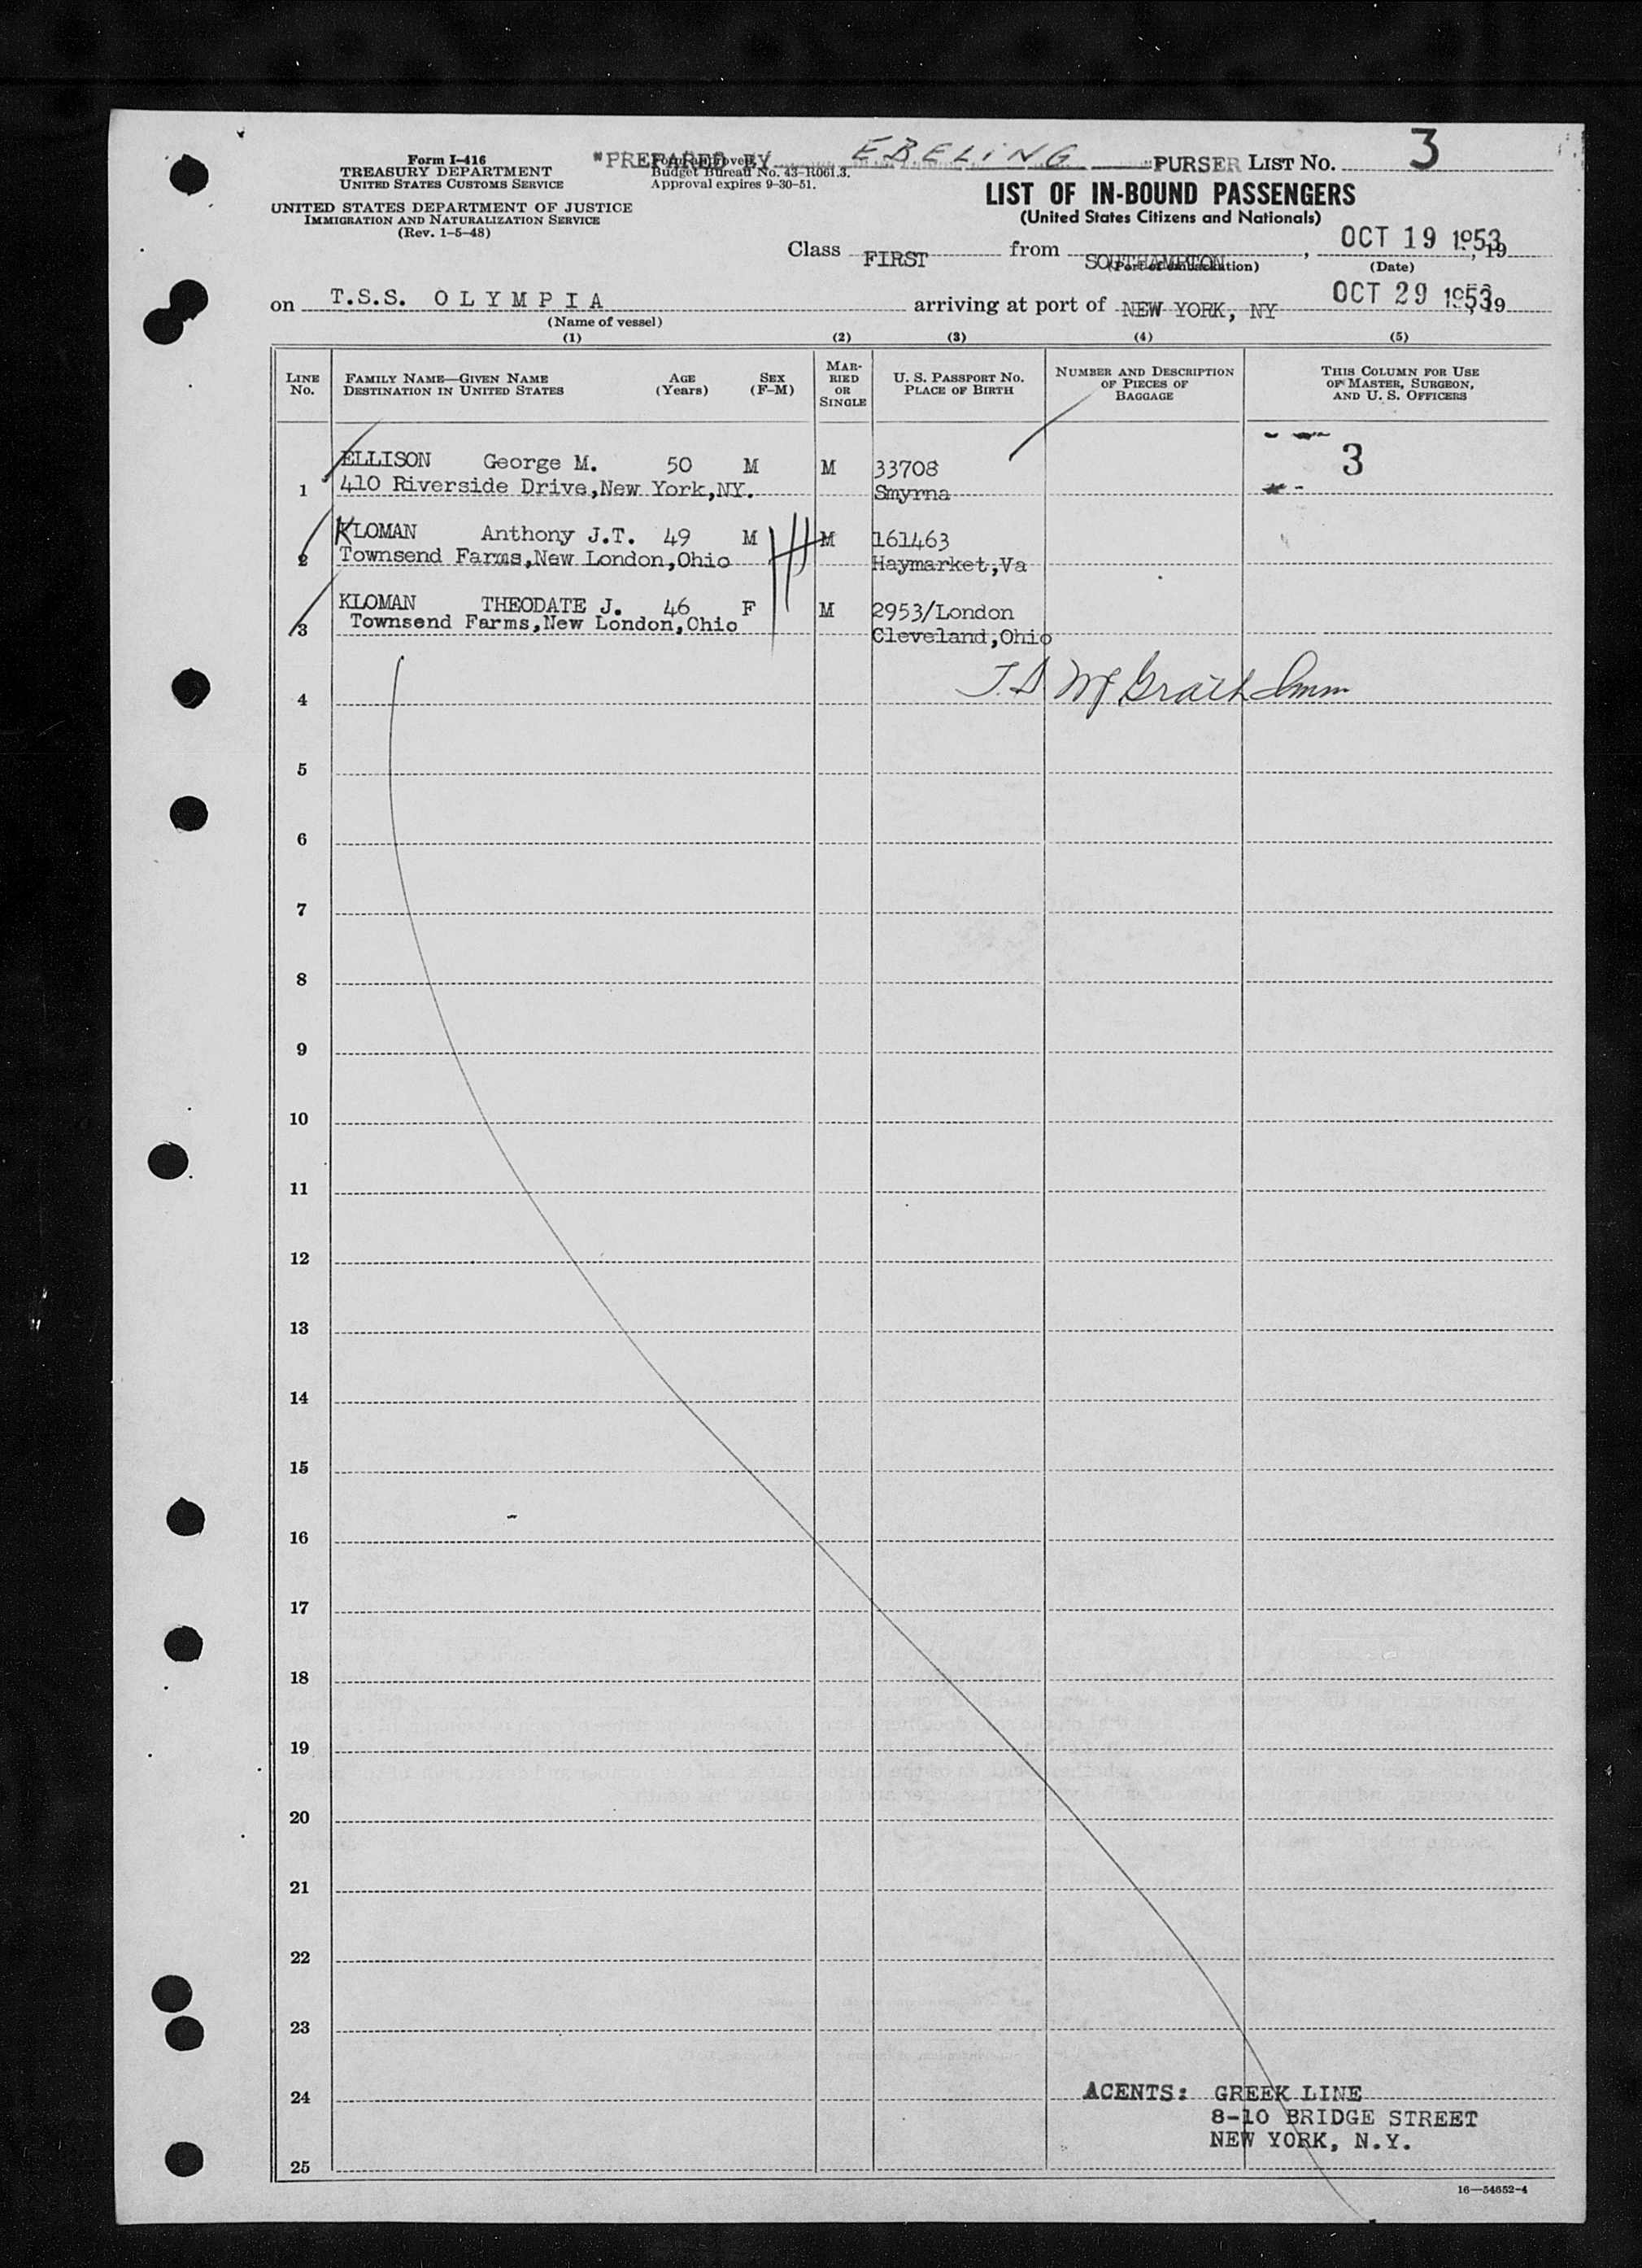 Form I-416
TREASURY DEPARTMENT
UNITED STATES CUSTOMS SERVICE
UNITED STATES DEPARTMENT OF JUSTICE
IMMIGRATION AND NATURALIZATION SERVICE
(Rev. 1-5-48)
"PREPARED BY EBELING "PURSER LIST No. 3
Form approved.
Budget Bureau No. 43-R061.3.
Approval expires 9-30-51.
LIST OF IN-BOUND PASSENGERS
(United States Citizens and Nationals)
Class FIRST from SOUTHAMPTON, OCT 19 1953, 19
(Port of embarkation) (Date)
on T.S.S. OLYMPIA arriving at port of NEW YORK, NY OCT 29 1953, 19
(Name of vessel)
(1) (2) (3) (4) (5)
LINE No. FAMILY NAME—GIVEN NAME DESTINATION IN UNITED STATES AGE (Years) SEX (F-M) MARRIED OR SINGLE U. S. PASSPORT No. PLACE OF BIRTH NUMBER AND DESCRIPTION OF PIECES OF BAGGAGE THIS COLUMN FOR USE OF MASTER, SURGEON, AND U. S. OFFICERS
ELLISON George M. 50 M M 33708 3
1 410 Riverside Drive,New York,NY. Smyrna
KLOMAN Anthony J.T. 49 M M 161463
2 Townsend Farms,New London,Ohio Haymarket,Va
KLOMAN THEODATE J. 46 F M 2953/London
3 Townsend Farms,New London,Ohio Cleveland,Ohio
4 McGrath Imm
5
6
7
8
9
10
11
12
13
14
15
16
17
18
19
20
21
22
23
24 AGENTS: GREEK LINE
8-10 BRIDGE STREET
NEW YORK, N.Y.
25
16—54652-4